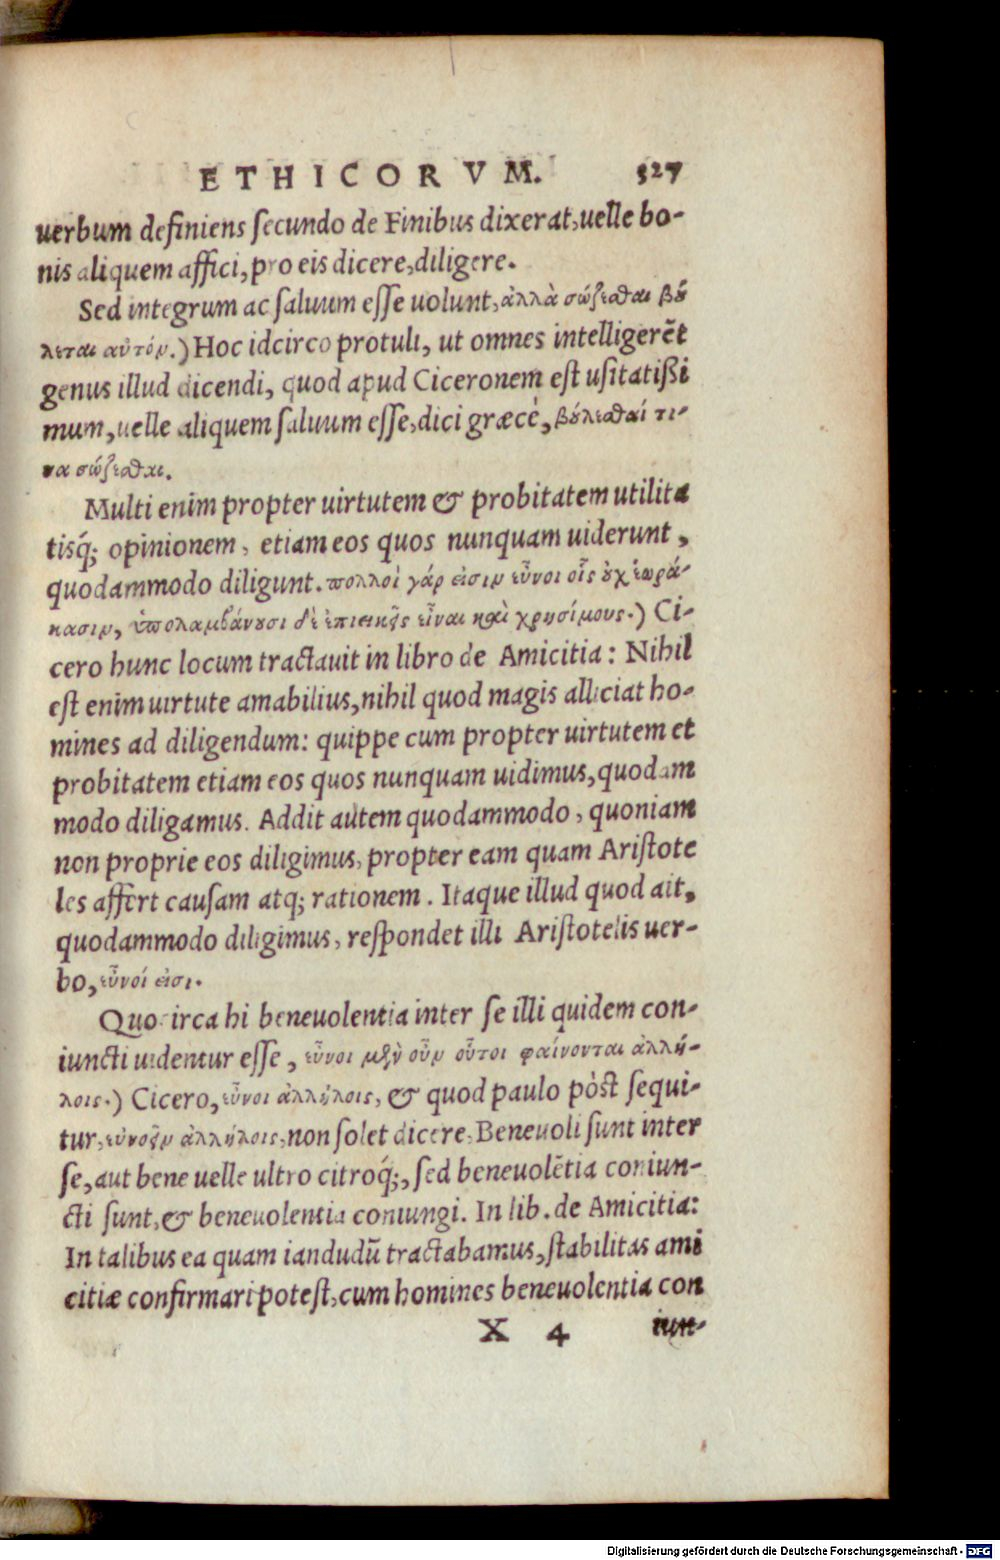 ETHICORVM. 327
uerbum definiens ſecundo de Finibus dixerat, uelle bo-
nis aliquem affici, pro eis dicere, diligere.
Sed integrum ac ſaluum eſſe uolunt, ἀλλὰ σώζεσθαι βού
λεται αὐτόν.) Hoc idcirco protuli, ut omnes intelligerēt
genus illud dicendi, quod apud Ciceronem eſt uſitatißi
mum, uelle aliquem ſaluum eſſe, dici græcè, βούλεσθαί τι-
να σώζεσθαι.
Multi enim propter uirtutem & probitatem utilita
tisq́; opinionem, etiam eos quos nunquam uiderunt,
quodammodo diligunt. πολλοὶ γάρ εἰσιν εὖνοι οἷς οὐχ ἑωρά-
κασιν, ὑπολαμβάνουσι δὲ ἐπιεικεῖς εἶναι καὶ χρησίμους.) Ci-
cero hunc locum tractauit in libro de Amicitia: Nihil
eſt enim uirtute amabilius, nihil quod magis alliciat ho-
mines ad diligendum: quippe cum propter uirtutem et
probitatem etiam eos quos nunquam uidimus, quodam
modo diligamus. Addit autem quodammodo, quoniam
non proprie eos diligimus, propter eam quam Ariſtote
les affert cauſam atq; rationem. Itaque illud quod ait,
quodammodo diligimus, reſpondet illi Ariſtotelis uer-
bo, εὖνοί εἰσι.
Quocirca hi beneuolentia inter ſe illi quidem con-
iuncti uidentur eſſe, εὖνοι μὲν οὖν οὗτοι φαίνονται ἀλλή-
λοις.) Cicero, εὖνοι ἀλλήλοις, & quod paulo pòſt ſequi-
tur, εὐνοεῖν ἀλλήλοις, non ſolet dicere, Beneuoli ſunt inter
ſe, aut bene uelle ultro citroq́;, ſed beneuolētia coniun-
cti ſunt, & beneuolentia coniungi. In lib. de Amicitia:
In talibus ea quam iandudū tractabamus, ſtabilitas ami
citiæ confirmari poteſt, cum homines beneuolentia con
X 4 iun-
Digitalisierung gefördert durch die Deutsche Forschungsgemeinschaft - DFG